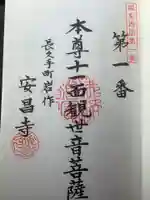 第一番
本尊十一面観世音菩薩
長久手町岩作
安昌寺